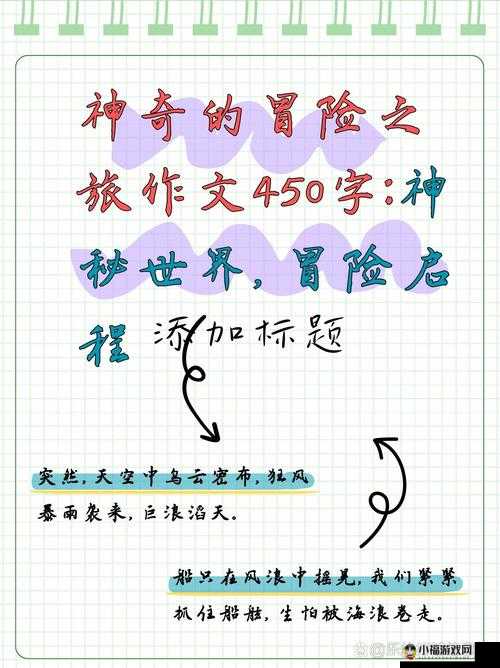 神奇的冒险之
旅作文450字:神
秘世界,冒险启
程 添加标题
突然,天空中乌云密布,狂风
暴雨袭来,巨浪滔天。
船只在风浪中摇晃,我们紧紧
抓住船舷,生怕被海浪卷走。
小福游戏网